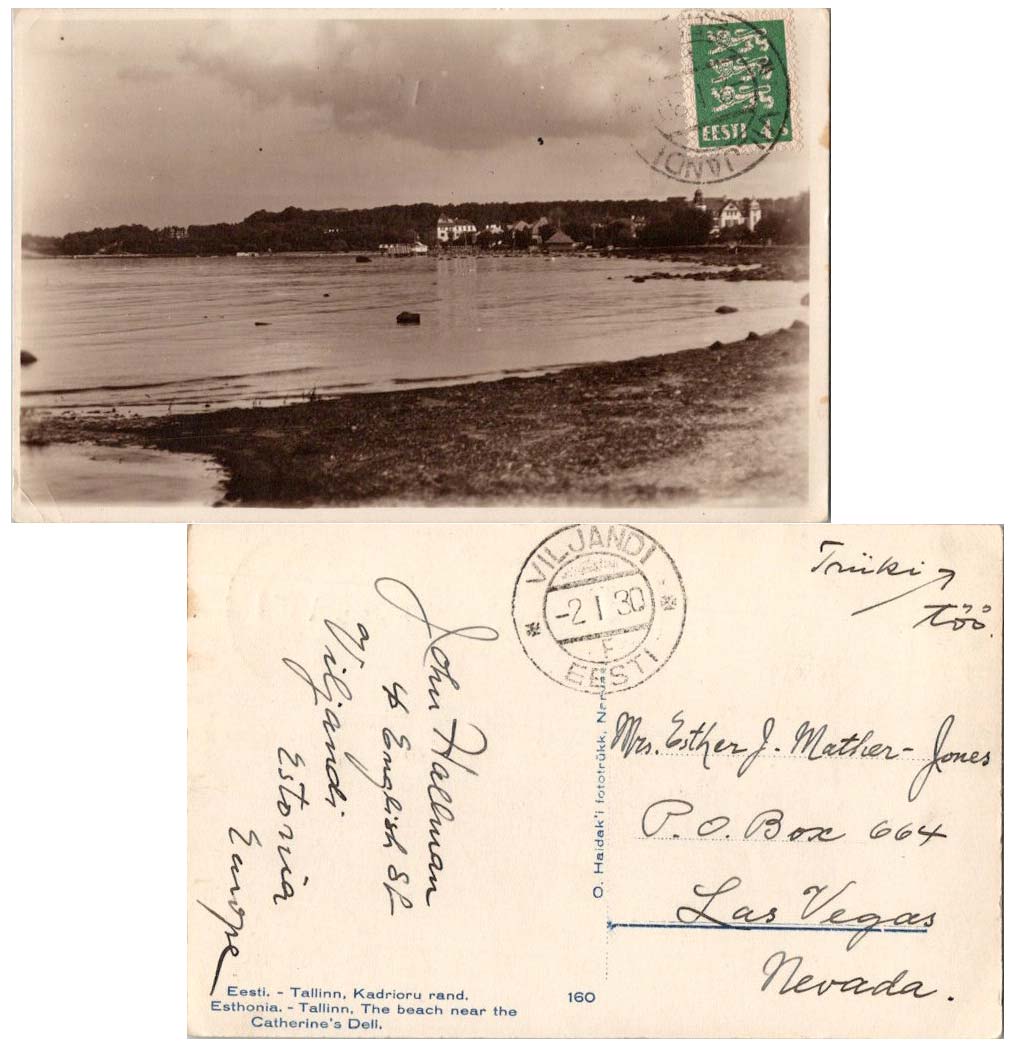 EESTI 4 s
VILJANDI
VILJANDI
-2 I 30
F
EESTI
Trüki
töö.
John Hallman
4 English St
Viljandi
Estonia
Europe
O. Haidak'i fototrükk, Narva
Mrs. Esther J. Mather-Jones
P. O. Box 664
Las Vegas
Nevada.
Eesti. - Tallinn, Kadrioru rand.
Esthonia. - Tallinn, The beach near the
Catherine's Dell.
160